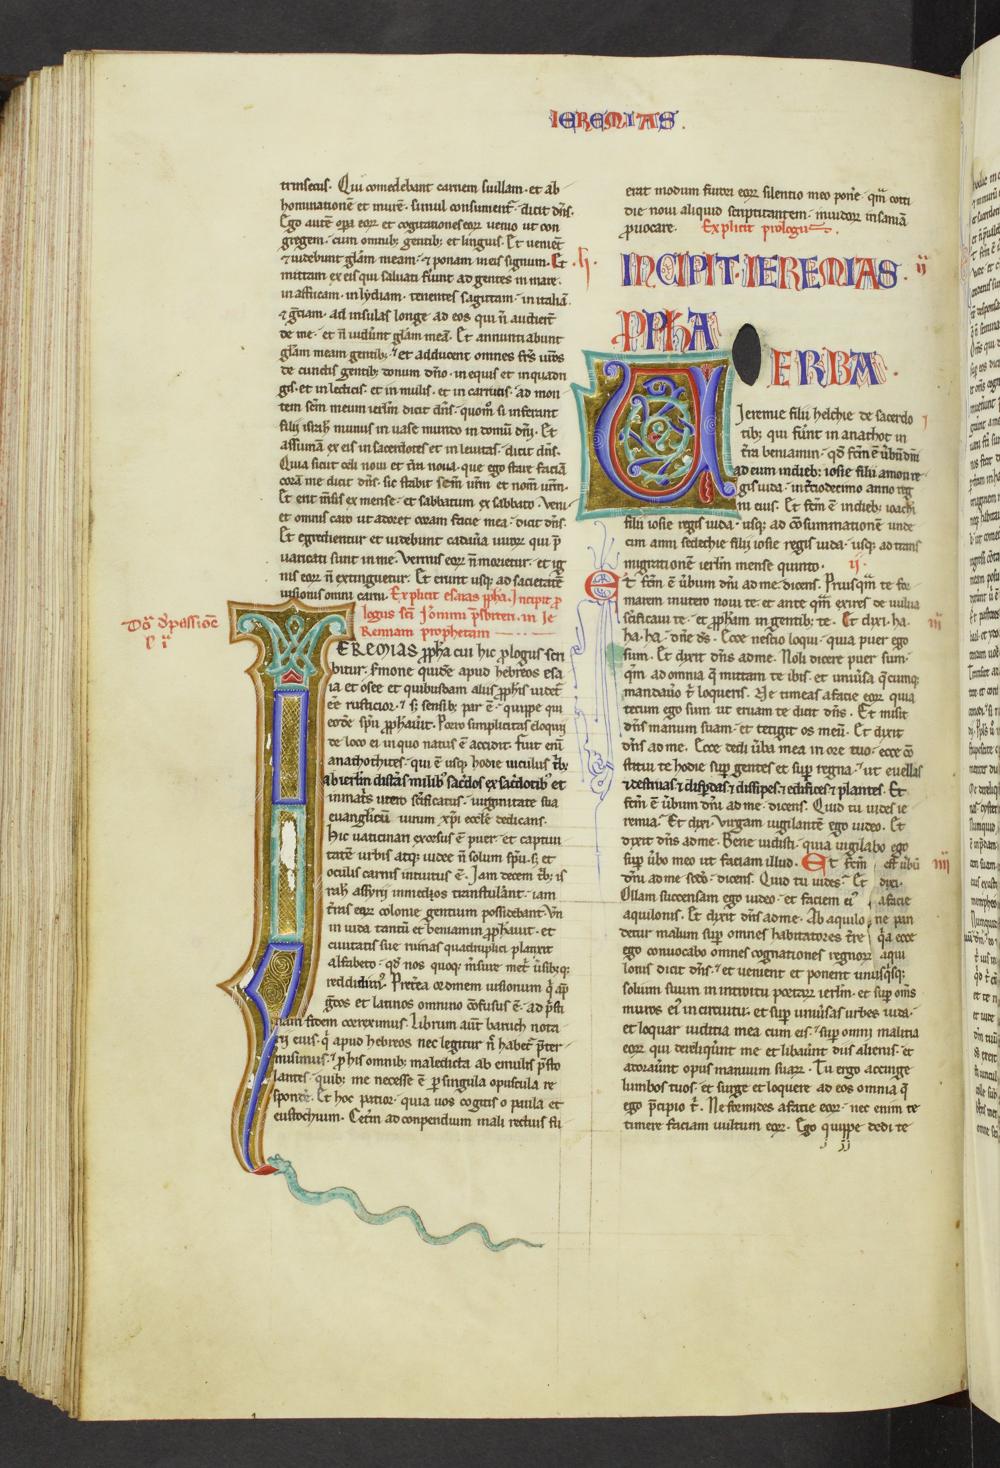 IEREMIAS.
trinsecus. Qui comedebant carnem suillam. et ab
hominationē et murē. simul consumentᷣ. dicit dn̄s.
Ego autē opa eoꝝ et cogitationes eoꝝ uenio ut con
gregem. cum omnibꝫ gentibꝫ et linguis. Et ueniēt
⁊ uidebunt gl̄am meam. ⁊ ponam in eis signum. Et
mittam ex eis qui saluati fuͥnt ad gentes in mare.
in affricam. in lydiam. tenentes sagittam. in italiā
⁊ gᷓciam. ad insulas longe. ad eos qui n̄ audierͭ
de me. et n̄ uidͬunt gl̄am meā. Et annuntiabunt
gl̄am meam gentibꝫ. ⁊ et adducent omnes fr̄s ur̄os
de cunctis gentibꝫ donum dn̄o. in equis et in quadri
gis. et in lecticis. et in mulis. et in carrucis. ad mon
tem sc̄m meum ierl̄m dicit dn̄s. quom̊ si inferant
filii isrl̄ munus in uase mundo in domū dn̄i. Et
assumā ex eis in sacerdotes et in leuitas. dicit dn̄s.
Quia sicut celi noui et t̄ra noua. que ego stare faciā
corā me dicit dn̄s. sic stabit sem̄ ur̄m et nom̄ ur̄m.
Et erit m̄sis ex mense. et sabbatum ex sabbato. Veni
et omnis caro ut adoret coram facie mea. dicit dn̄s.
Et egredientur et uidebunt cadauͣa uiroꝝ qui p̄
uaricati sunt in me. Vermis eoꝝ n̄ morietur. et ig
nis eoꝝ n̄ extinguetur. Et erunt usqꝫ ad societatē
uisionis omni carni. Explicit esaias ꝓpha. Incipit ꝓ
logus sc̄i Ieronimi p̄sbiteri. in Ie
Remiam prophetam
Dō d̓ passione
IEREMIAS ꝓpha cui hic ꝓlogus scri
bitur. sͤmone quidē apud hebreos esa
ia et osee et quibusdam aliis ꝓphis uidetͬ
eē rusticior. ⁊ sꝫ sensibꝫ par ē. quippe qui
eodē spū ꝓphauit. Porro simplicitas eloquii
de loco ei in quo natus ē accidit. fuit enī
anathothites. qui ē usqꝫ hodie uiculus tͥbꝫ
ab ierl̄m distās milibꝰ. sacͤdos ex sacͤdotibꝰ et
in matͥs utero sc̄ificatus. uirginitate sua
euangelicū uirum xp̄i eccl̄e dedicans.
hic uaticinari exorsus ē puer. et captiui
tatē urbis atqꝫ iudee n̄ solum spū. sꝫ et
oculis carnis intuitus ē. Iam decem tͥbꝫ is
rahl̄ assyrii in medos transtulͣant. iam
t̄ras eoꝝ colonie gentium possidebant. Vn̄
in iuda tantū et beniamin ꝓphauit. et
ciuitatis sue ruinas quadruplici planxit
alfabeto. qd̄ nos quoqꝫ m̄sure metͥ uͤsibꝫqꝫ
reddidimꝰ. Pret̄ea ordinem uisionum q̄ ap
gͣcos et latinos omnino cōfusus ē. ad pͥsti
nam fidem correximus. Librum aut̄ baruch nota
rii eius. q̄ apud hebreos nec legitur n̄ habetͬ p̄ter
misimus. ⁊ ꝓ his omnibꝫ maledicta ab emulis p̄sto
lantes. quibꝫ me necesse ē ꝑ singula opuscula re
spondē. Et hoc patior. quia uos cogitis o paula et
eustochium. Cetͤm ad conpendium mali rectius fu
erat modum furori eoꝝ silentio meo ponͤe. qͣm coti
die noui aliquid scriptitantem. inuidoꝝ insaniā
ꝓuocare. Explicit prologus.
INCIPIT IEREMIAS
PPHA
VERBA
Ieremie filii helchie de sacerdo
tibꝫ qui fuͥnt in anathot in
t̄ra beniamin. qd̄ fcm̄ ē ūbū dn̄i
ad eum in diebꝫ iosie filii amon re
gis iuda. in tͤciodecimo anno reg
ni eius. Et fcm̄ ē in diebꝫ ioachi
filii iosie regis iuda. usqꝫ ad cōsummationē unde
cim anni sedechie filii iosie regis iuda. usqꝫ ad trans
migrationē ierl̄m mense quinto. ii.
Et fcm̄ ē ūbum dn̄i ad me. dicens. Priusqͣm te for
marem in utero noui te. et ante qͣm exires de uulua
sc̄ificaui te. et ꝓpham in gentibꝫ te. Et dixi. ha. iii
ha. ha. dn̄e d̄s. Ecce nescio loqui. quia puer ego
sum. Et dixit dn̄s ad me. Noli dicere puer sum.
qm̄ ad omnia q̄ mittam te ibis. et uniūsa q̄cumqꝫ
mandauͤo t̄ loqueris. Ne timeas a facie eoꝝ quia
tecum ego sum ut eruam te dicit dn̄s. Et misit
dn̄s manum suam. et tetigit os meū. Et dixit
dn̄s ad me. Ecce dedi ūba mea in ore tuo. ecce cō
stitui te hodie suꝑ gentes et suꝑ regna. ⁊ ut euellas
⁊ destruas ⁊ disꝑdas ⁊ dissipes. ⁊ edifices ⁊ plantes. Et
fcm̄ ē ūbum dn̄i ad me. dicens. Quid tu uides ie
remia. Et dixi. Virgam uigilantē ego uideo. Et
dixit dn̄s ad me. Bene uidisti. quia uigilabo ego
suꝑ ūbo meo ut faciam illud. Et fcm̄ est ūbū iiii
dn̄i ad me scd̄o. dicens. Quid tu uides. Et dixi.
Ollam succensam ego uideo. et faciem eiꝰ a facie
aquilonis. Et dixit dn̄s ad me. Ab aquilone pan
detur malum suꝑ omnes habitatores t̄re. qͥa ecce
ego conuocabo omnes cognationes regnoꝝ aqui
lonis dicit dn̄s. ⁊ et uenient et ponent unusqͥsqꝫ
solium suum in introitu portaꝝ ierl̄m. et suꝑ om̄s
muros eiꝰ in circuitu. et suꝑ uniūsas urbes iuda.
et loquar iuditia mea cum eis. ⁊ suꝑ omni malitia
eoꝝ qui dereliqͬunt me et libauͬunt diis alienis. et
adorauͬunt opus manuum suaꝝ. Tu ergo accinge
lumbos tuos. et surge et loquere ad eos omnia q̄
ego p̄cipio t̄. Ne formides a facie eoꝝ. nec enim te
timere faciam uultum eoꝝ. Ego quippe dedi te